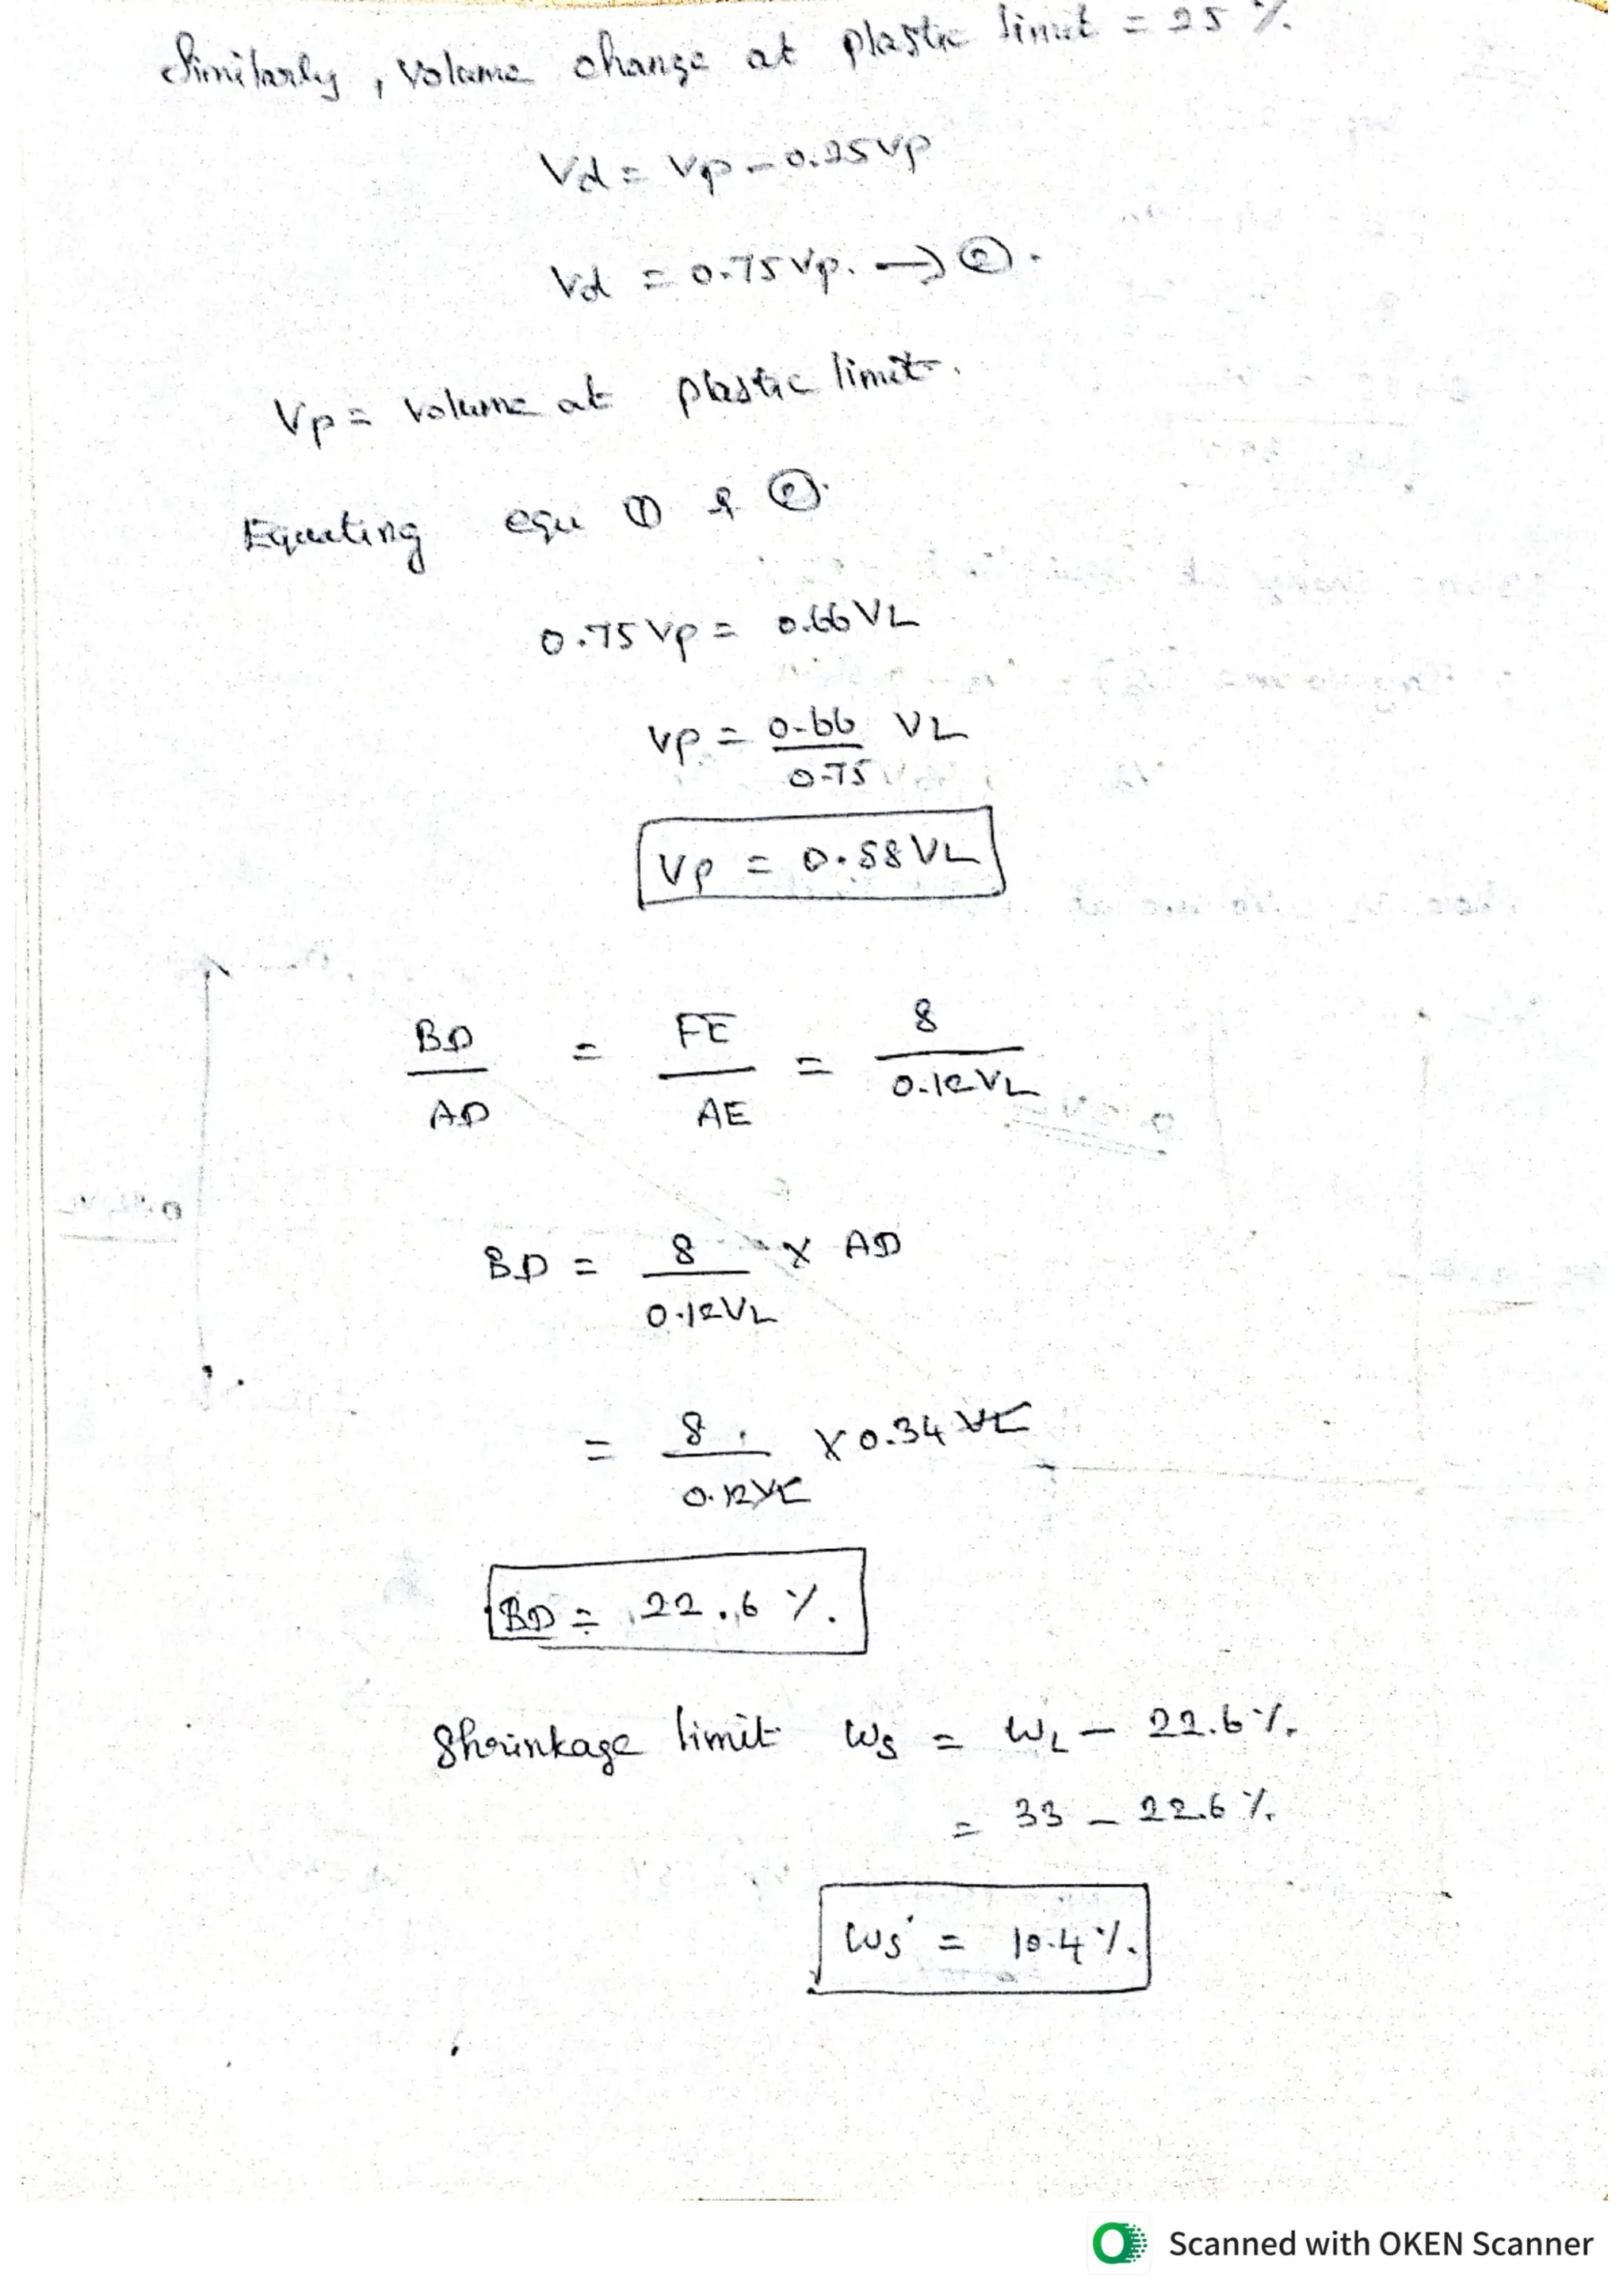 Similarly, volume change at plastic limit = 25 %.
Vd = Vp - 0.25 Vp
Vd = 0.75 Vp. → ②.
Vp = volume at plastic limit.
Equating equ ① & ②.
0.75 Vp = 0.66 VL
Vp = 0.66 VL
0.75
Vp = 0.58 VL
BD = FE = 8
AD AE 0.12 VL
BD = 8 x AD
0.12 VL
= 8 x 0.34 VL
0.12 VL
BD = 22.6 %.
Shrinkage limit ws = wL - 22.6 %.
= 33 - 22.6 %.
ws = 10.4 %.
Scanned with OKEN Scanner